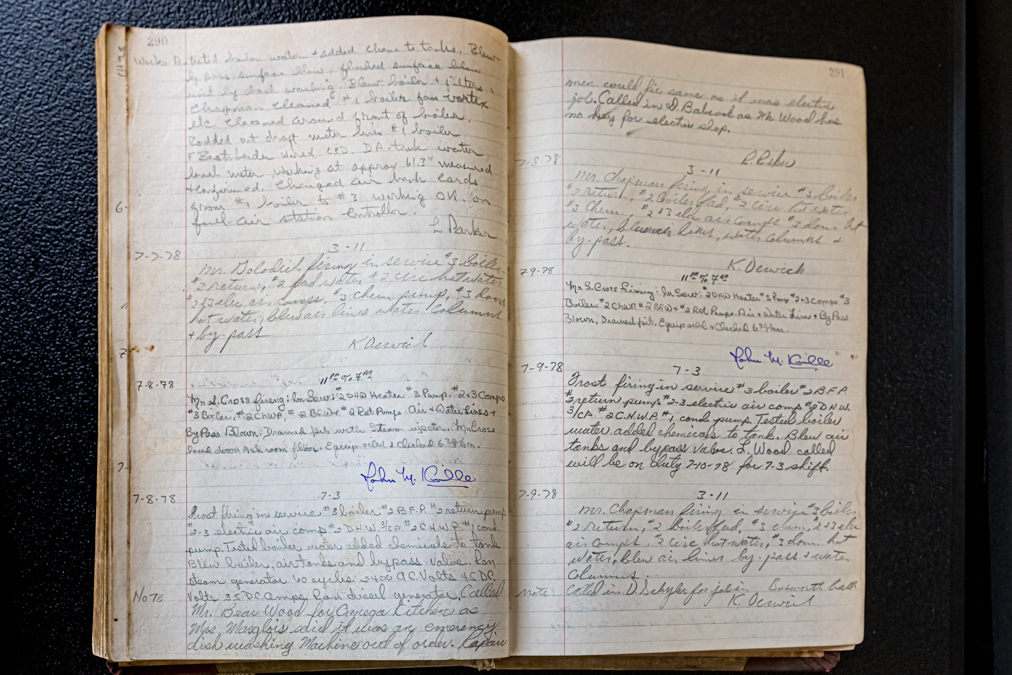 290
tested boiler water + added chems to tanks. Blew
by pass surface blow, flushed surface blow
unit by back washing. Blew boiler + filters,
Chapman cleaned #1 boiler fan vortex
etc cleaned around front of boiler,
rodded out draft meter lines #1 boiler
D.A. tank water
level water working at approx 61.3" measured
+ confirmed. Changed air bank cards
from #1 boiler to #3 working OK. on
fuel-air ratio controller.
L Parker
7-7-78
3-11
Mr. firing in service #3 boiler
#2 return, #2 feed water #2 circ hot water
#2+3 elec air comps, #3 chem pump, #3 dom
hot water, blew air lines water columns
+ by-pass
K. Derwich
7-8-78
11PM to 7AM
Mr S. Cross firing: In Serv: #2 DHW Heater #3 Pump. #2+3 Comps
#3 Boiler, #2 CHWP #2 BFW + #2 Ret Pumps. Air + Water Lines +
By Pass Blown. Drained pits with Steam injector. Mr Cross
hosed down Ash room floor. Equip oiled + Checked
John M. Kille
7-8-78
7-3
Frost firing in service #3 boiler #2 B.F.P. #2 return pump
#2-3 electric air comp #2 D.H.W. 3/CP #2 C.H.W.P. #1 cond.
pump. Tested boiler water added chemicals to tank
Blew boiler, air tanks and bypass valve. Ran
steam generator 60 cycles 2400 A.C. Volts 45 DC.
Volts 35 D.C. amps. Ran diesel generator. Called
Note
Mr. Wood for Omega Kitchen as
Mrs. said it was an emergency
dish washing Machine out of order. Repair
291
men could fix same as it was electric
job. Called in D Babcock as Mr Wood has
no key for electric shop.
7-8-78
3-11
Mr. Chapman firing in service #3 boiler
#2 return, #2 boiler feed, #2 circ hot water,
#3 chem, #2+3 elec air comps #3 dom hot
water, blew air lines, water columns +
by-pass.
K. Derwich
7-9-78
11PM to 7AM
Mr S. Cross Firing: In Serv: #2 DHW Heater #3 Pump #2+3 Comps #3
Boiler #2 CHWP #2 BFW + #2 Ret Pumps. Air + Water Lines + By Pass
Blown, Drained pits. Equip oiled + Checked
John M. Kille
7-9-78
7-3
Frost firing in service #3 boiler #2 B.F.P.
#2 return pump #2-3 electric air comp #2 D.H.W.
3/CP #2 C.H.W.P. #1 cond. pump. Tested boiler
water added chemicals to tank. Blew air
tanks and bypass valve. L. Wood called
will be on duty 7-10-78 for 7-3 shift.
7-9-78
3-11
Mr. Chapman firing in service #3 boiler
#2 return, #2 boiler feed, #3 chem, #2+3 elec
air comps. #2 circ hot water, #3 dom hot
water, blew air lines by-pass + water
columns.
note
Called in D for job in Bosworth
K. Derwich